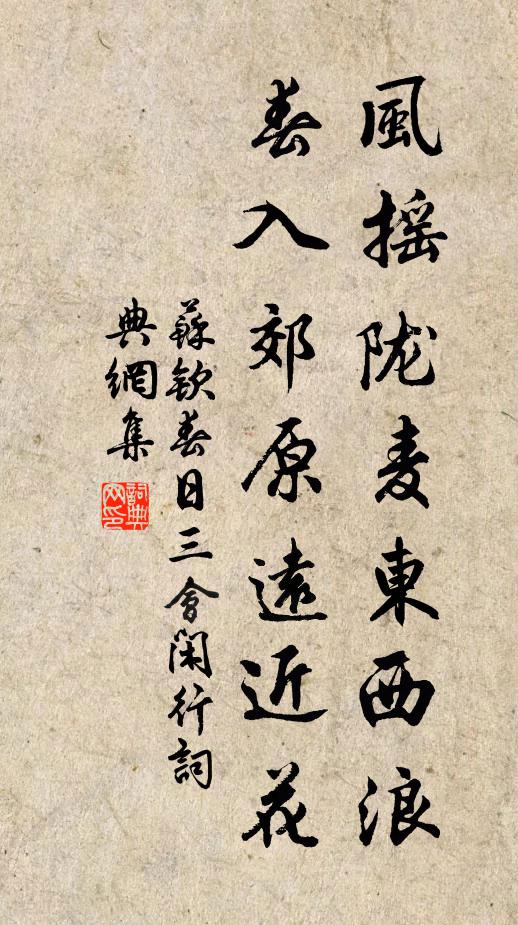 風摇陇麦東西浪
春入郊原遠近花
蘇欽春日三會閑行詞
典網集
詞典
网印